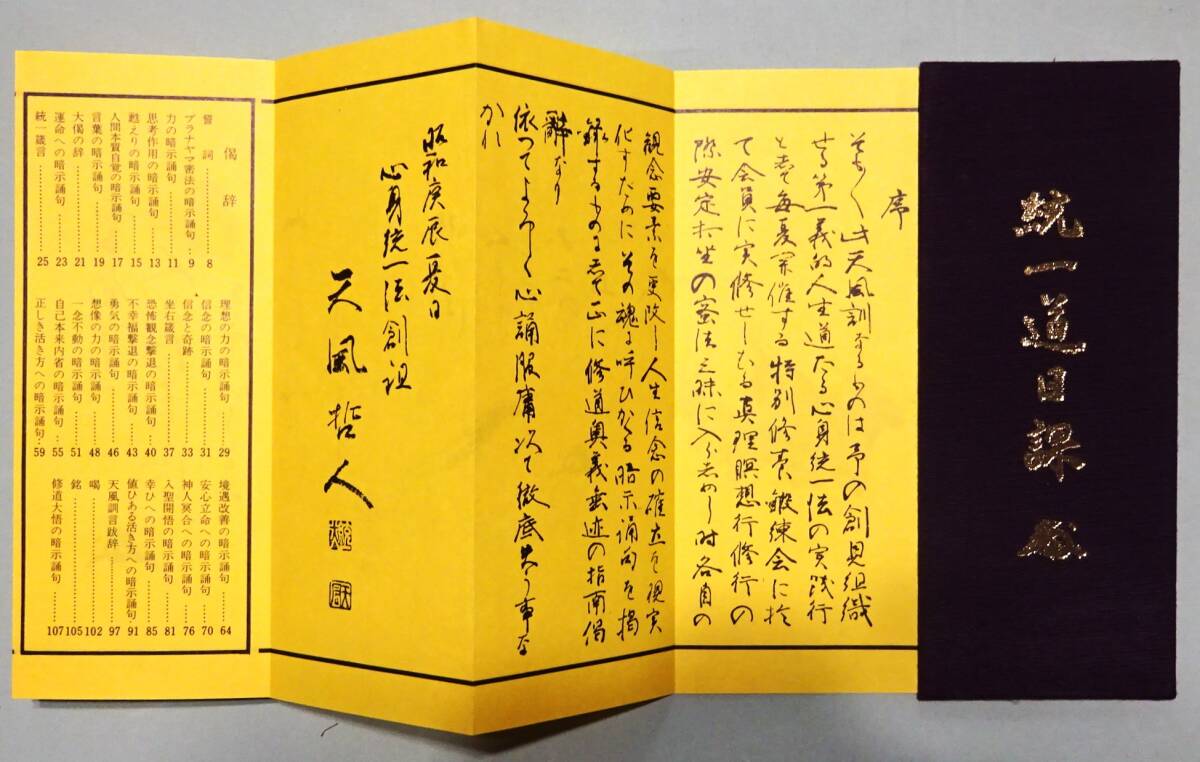 統一道日課
序
そもそも此天風訓なるものは予の創見組織
せる第一義的人生道たる心身統一法の実践行
として毎夏開催する特別修養鍛練会に於
て会員に実修せしむる真理瞑想行修行の
際安定打坐の密法三昧に入らしめし時各自の
観念要素を更改し人生信念の確立を現実
化すために その魂に呼びかくる暗示誦句を掲
録するものにして正に修道奥義垂迹の指南偈
辭なり
依つてよろしく心誦服膺以て徹底失う事な
かれ
昭和庚辰夏日
心身統一法創祖
天風哲人
偈辞
誓詞……8
プラナヤマ密法の暗示誦句……9
力の暗示誦句……11
思考作用の暗示誦句……13
甦えりの暗示誦句……15
人間本質自覚の暗示誦句……17
言葉の暗示誦句……19
大偈の辞……21
運命への暗示誦句……23
統一箴言……25
理想の力の暗示誦句……29
信念の暗示誦句……31
信念と奇跡……33
坐右箴言……37
恐怖観念撃退の暗示誦句……40
不幸福撃退の暗示誦句……43
勇気の暗示誦句……46
想像の力の暗示誦句……48
一念不動の暗示誦句……51
自己本来内省の暗示誦句……55
正しき活き方への暗示誦句……59
境遇改善の暗示誦句……64
安心立命への暗示誦句……70
神人冥合への暗示誦句……76
入聖開悟の暗示誦句……81
幸ひへの暗示誦句……85
値ひある活き方への暗示誦句……91
天風訓言跋辞……97
喝……102
銘……105
修道大悟の暗示誦句……107